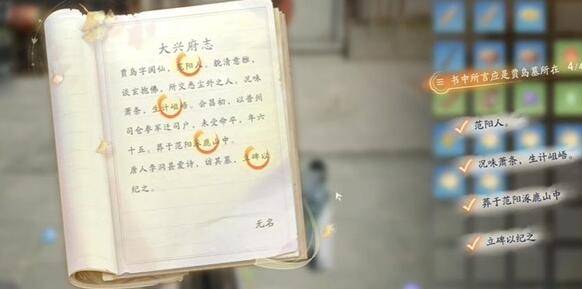 大兴府志
贾岛字阆仙，范阳人。貌清意雅，
谈玄抱佛，所交悉尘外之人。况味
萧条，生计岨峿。会昌初，以普州
司仓参军迁司户，未受命卒，年六
十五。葬于范阳涿鹿山中。
唐人李洞甚爱诗，访其墓，立碑以
纪之。
无名
书中所言应是贾岛墓所在 4/4
范阳人。
况味萧条，生计岨峿。
葬于范阳涿鹿山中
立碑以纪之